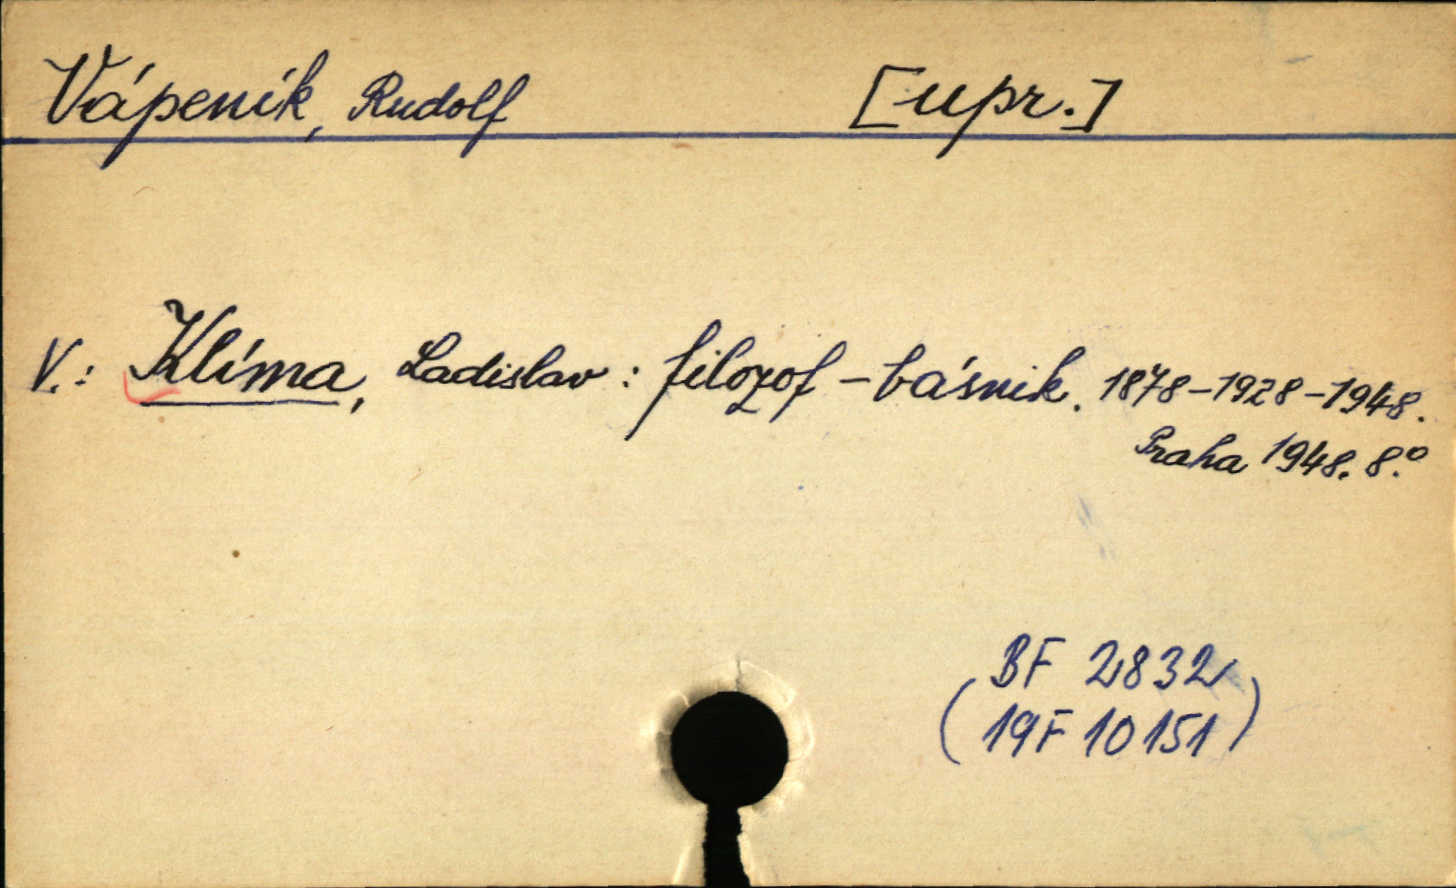 Vápeník, Rudolf [upr.]
V.: Klíma, Ladislav : filozof - básnik. 1878-1928-1948.
Praha 1948. 8.°
BF 2832
(19F 10151)